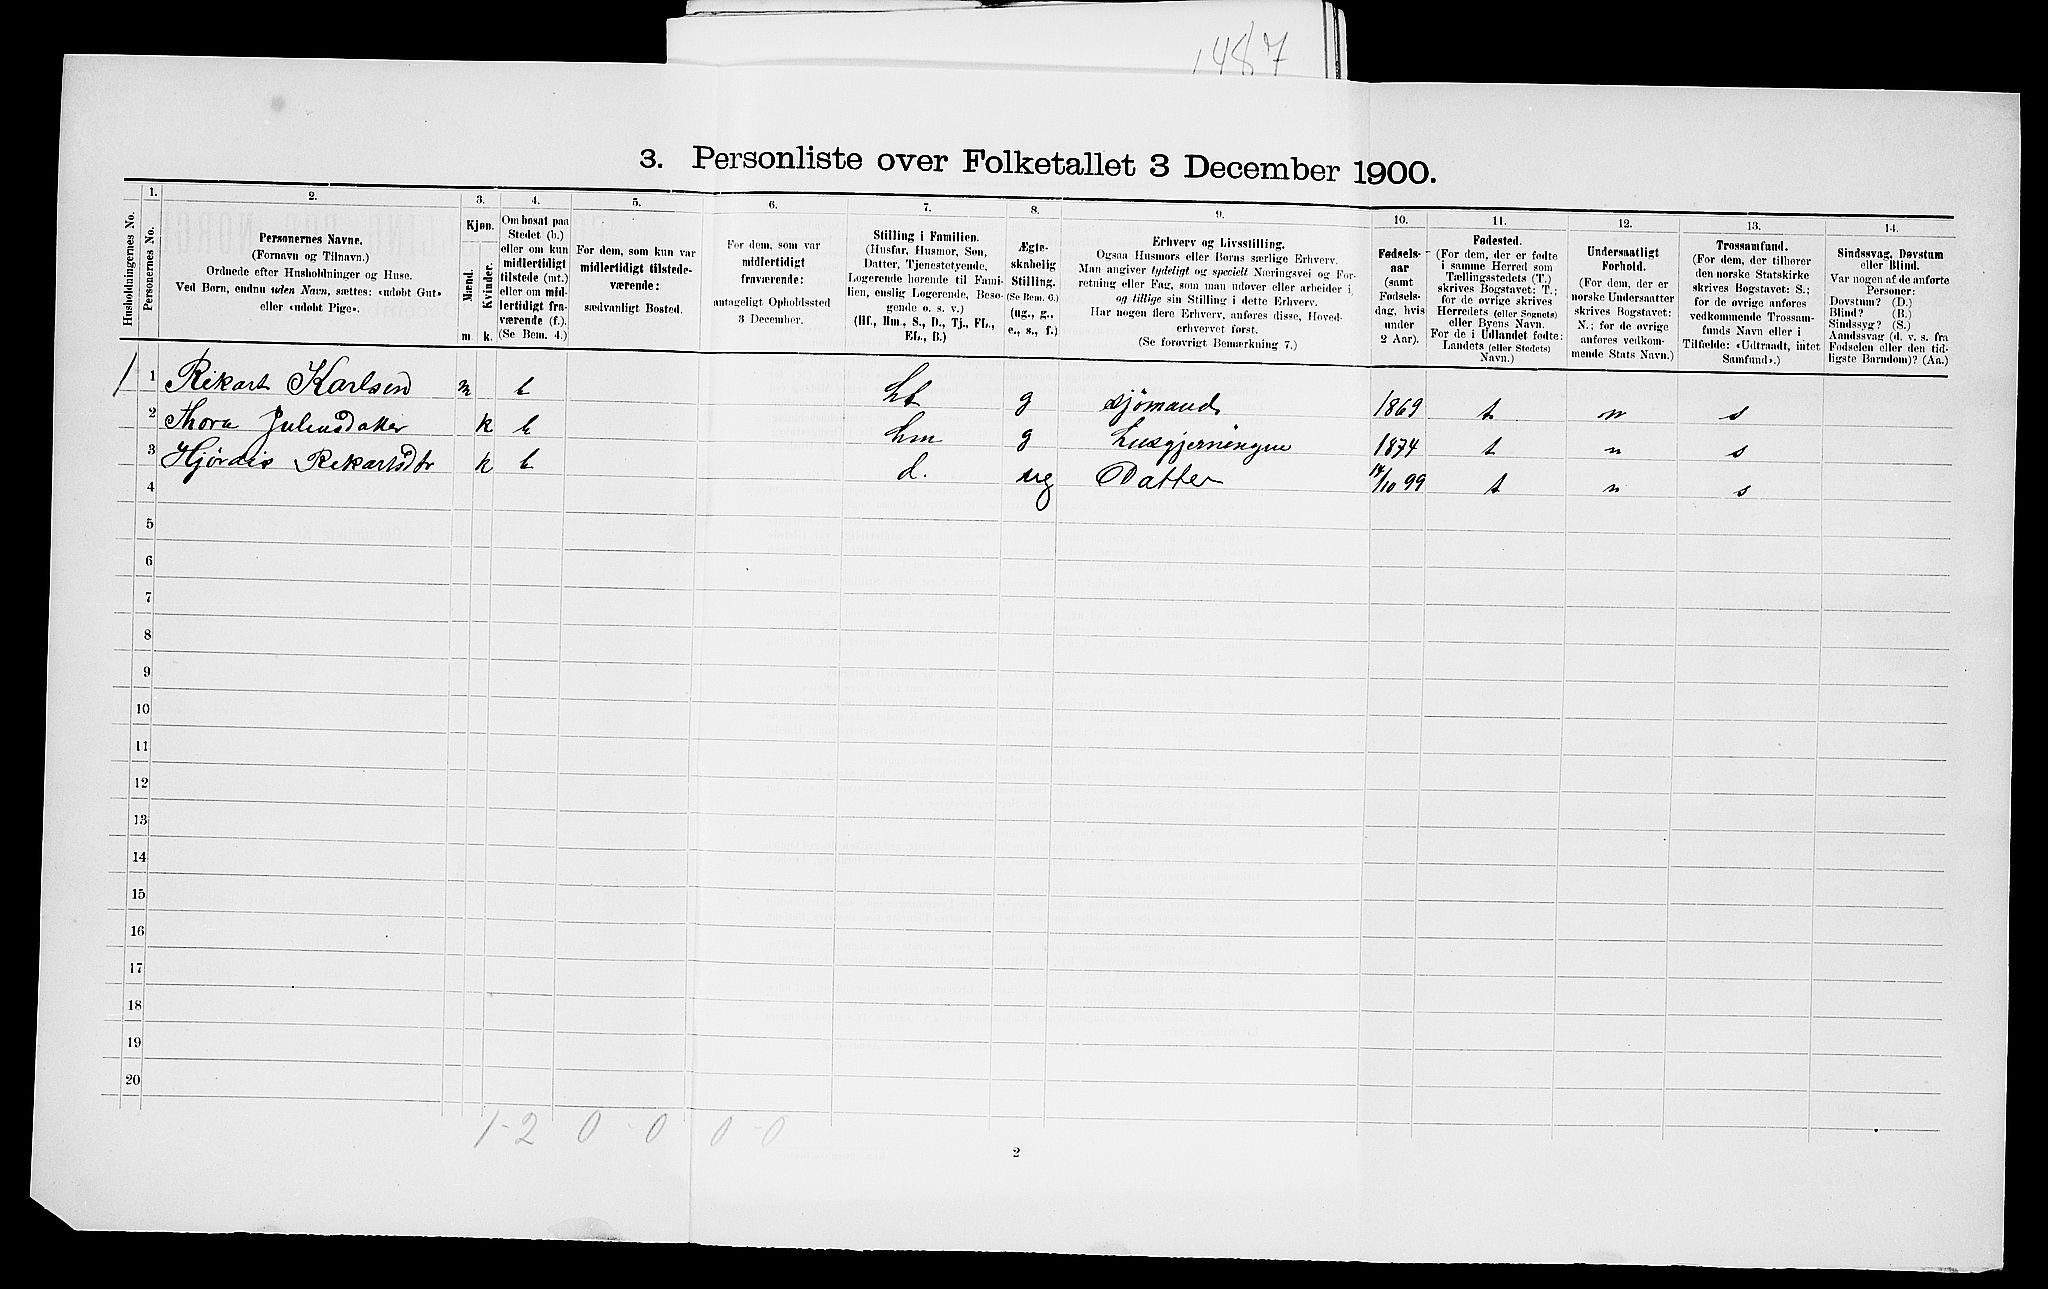 1487
3. Personliste over Folketallet 3 December 1900.
1. 2. 3. 4. 5. 6. 7. 8. 9. 10. 11. 12. 13. 14.
Husholdningernes No.
Personernes No.
Personernes Navne.
(Fornavn og Tilnavn.)
Ordnede efter Husholdninger og Huse.
Ved Børn, endnu uden Navn, sættes: «udøbt Gut»
eller «udøbt Pige».
Kjøn.
Mænd.
Kvinder.
m. k.
Om bosat paa
Stedet (b.)
eller om kun
midlertidigt
tilstede (mt.)
eller om mid-
lertidigt fra-
værende (f.).
(Se Bem. 4.)
For dem, som kun var
midlertidigt tilstede-
værende:
sædvanligt Bosted.
For dem, som var
midlertidigt
fraværende:
antageligt Opholdssted
3 December.
Stilling i Familien.
(Husfar, Husmor, Søn,
Datter, Tjenestetyende,
Logerende hørende til Fami-
lien, enslig Logerende, Besø-
gende o. s. v.)
(Hf., Hm., S., D., Tj., FL.,
EL., B.)
Ægte-
skabelig
Stilling.
(Se Bem. 6.)
(ug., g.,
e., s., f.)
Erhverv og Livsstilling.
Ogsaa Husmors eller Børns særlige Erhverv.
Man angiver tydeligt og specielt Næringsvei og For-
retning eller Fag, som man udøver eller arbeider i,
og tillige sin Stilling i dette Erhverv.
Har nogen flere Erhverv, anføres disse, Hoved-
erhvervet først.
(Se forøvrigt Bemærkning 7.)
Fødsels-
aar
(samt
Fødsels-
dag, hvis
under
2 Aar).
Fødested.
(For dem, der er fødte
i samme Herred som
Tællingsstedets (T.)
skrives Bogstavet: T.;
for de øvrige skrives
Herredets (eller Sognets)
eller Byens Navn.
For de i Udlandet fødte:
Landets (eller Stedets)
Navn.)
Undersaatligt
Forhold.
(For dem, der er
norske Undersaatter
skrives Bogstavet:
N.; for de øvrige
anføres vedkom-
mende Stats Navn.)
Trossamfund.
(For dem, der tilhører
den norske Statskirke
skrives Bogstavet: S.;
for de øvrige anføres
vedkommende Trossam-
funds Navn eller i
Tilfælde: «Udtraadt, intet
Samfund».)
Sindssvag, Døvstum
eller Blind.
Var nogen af de anførte
Personer:
Døvstum? (D.)
Blind? (B.)
Sindssyg? (S.)
Aandssvag (d. v. s. fra
Fødselen eller den tid-
ligste Barndom)? (Aa.)
1 1 Rikart Karlsen m b hf g sjömand 1869 t n s
2 Thora Juliusdatter k b hm g husgjerningen 1874 t n s
3 Hjördis Rikartsdtr k b d. ug Datter 14/10 99 t n s
4
5
6
7
8
9
10
11
12
13
14
15
16
17
18
19
20
1-2 0-0 0-0
2